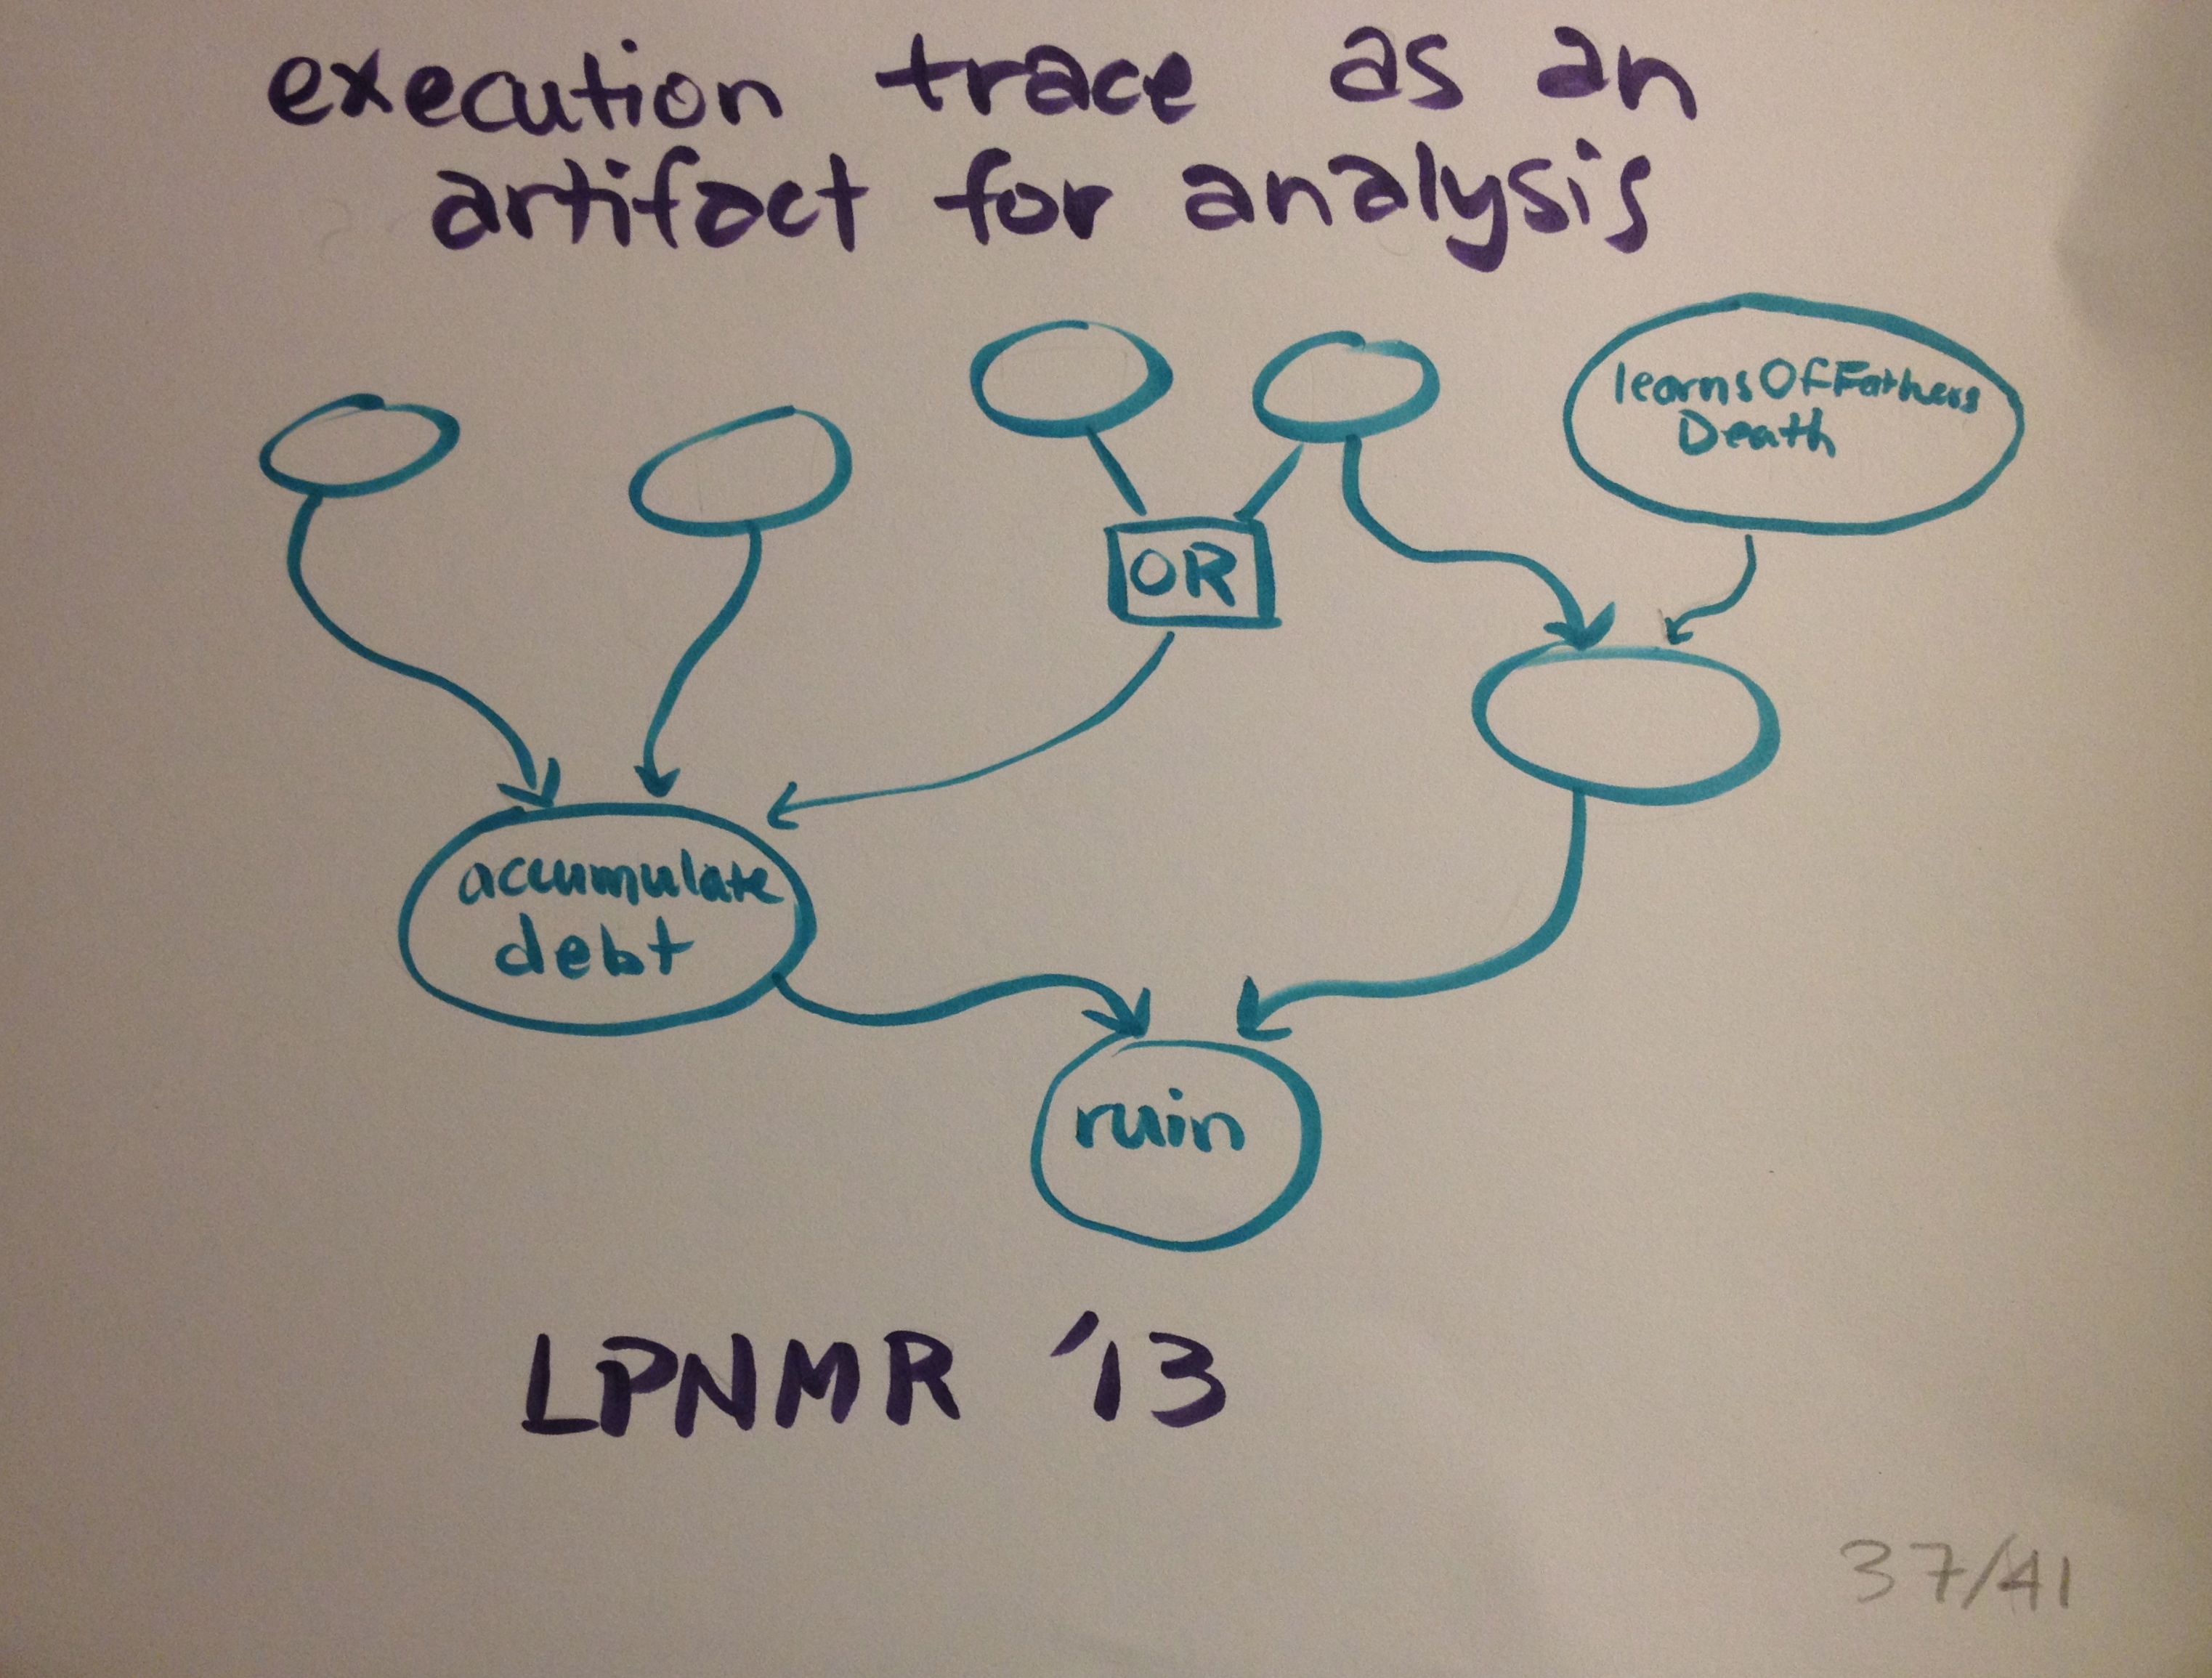 execution trace as an
artifact for analysis
learnsOfFathers
Death
OR
accumulate
debt
ruin
LPNMR '13
37/41